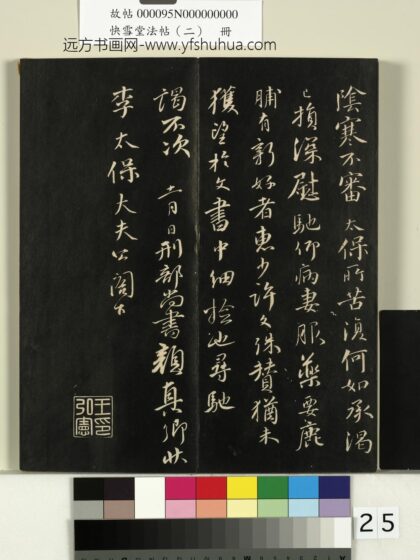 故帖 000095N000000000
快雪堂法帖（二） 冊
远方书画网-www.yfshuhua.com
陰寒不審 太保所苦復何如承渴
已損深慰馳仰病妻服藥要鹿
脯有新好者惠少許文殊賛猶未
獲望於文書中細撿也尋馳
謁不次 十一月日刑部尚書顏真卿狀
李太保大夫公閣下
王印
弘憲
25